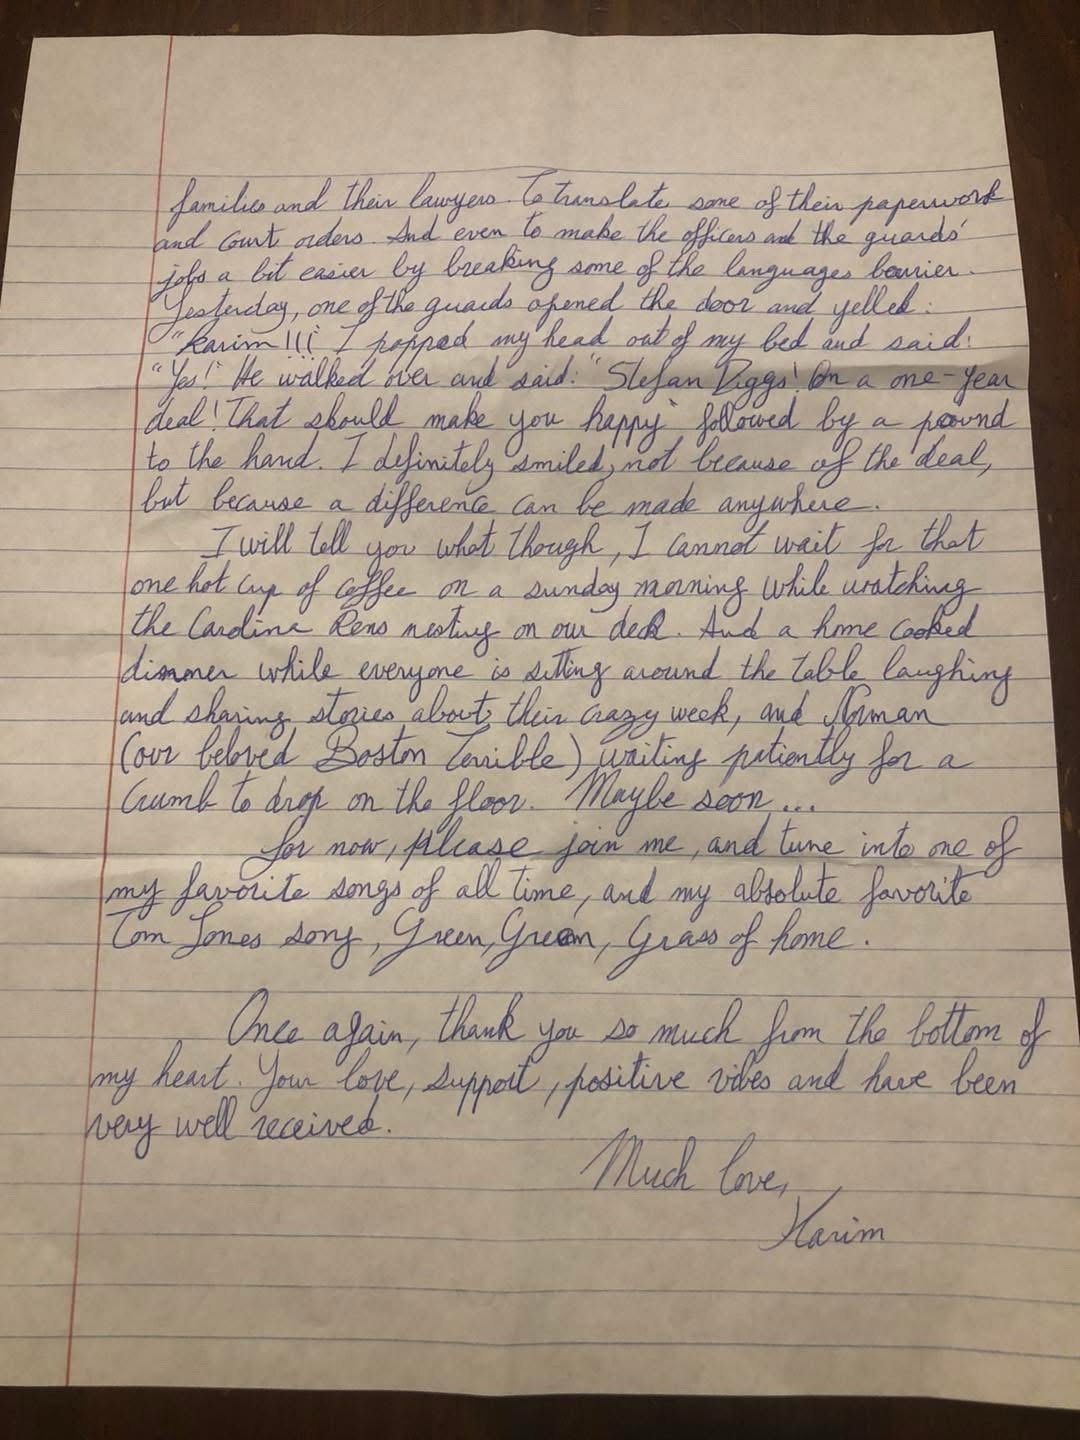 families and their lawyers. To translate some of their paperwork
and court orders. And even to make the officers and the guards'
jobs a bit easier by breaking some of the languages barrier.
Yesterday, one of the guards opened the door and yelled:
"Karim!!!" I popped my head out of my bed and said:
"Yes!" He walked over and said: "Stefan Diggs! On a one-year
deal! That should make you happy" followed by a pound
to the hand. I definitely smiled, not because of the deal,
but because a difference can be made anywhere.
I will tell you what though, I cannot wait for that
one hot cup of coffee on a sunday morning while watching
the Carolina Rens nesting on our deck. And a home cooked
dinner while everyone is sitting around the table laughing
and sharing stories about their crazy week, and Norman
(our beloved Boston Terrible) waiting patiently for a
crumb to drop on the floor. Maybe soon...
For now, please join me, and tune into one of
my favorite songs of all time, and my absolute favorite
Tom Jones song, Green, Green, Grass of home.
Once again, thank you so much from the bottom of
my heart. Your love, support, positive vibes and have been
very well received.
Much love,
Karim